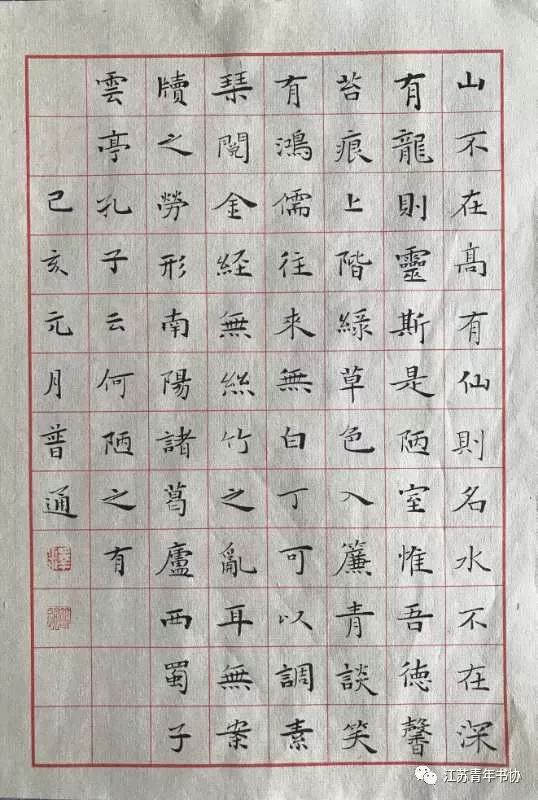 山不在高有仙則名水不在深
有龍則靈斯是陋室惟吾德馨
苔痕上階綠草色入簾青談笑
有鴻儒往來無白丁可以調素
琹閱金経無絲竹之亂耳無案
牘之勞形南陽諸葛廬西蜀子
雲亭孔子云何陋之有
己亥元月普通
江苏青年书协